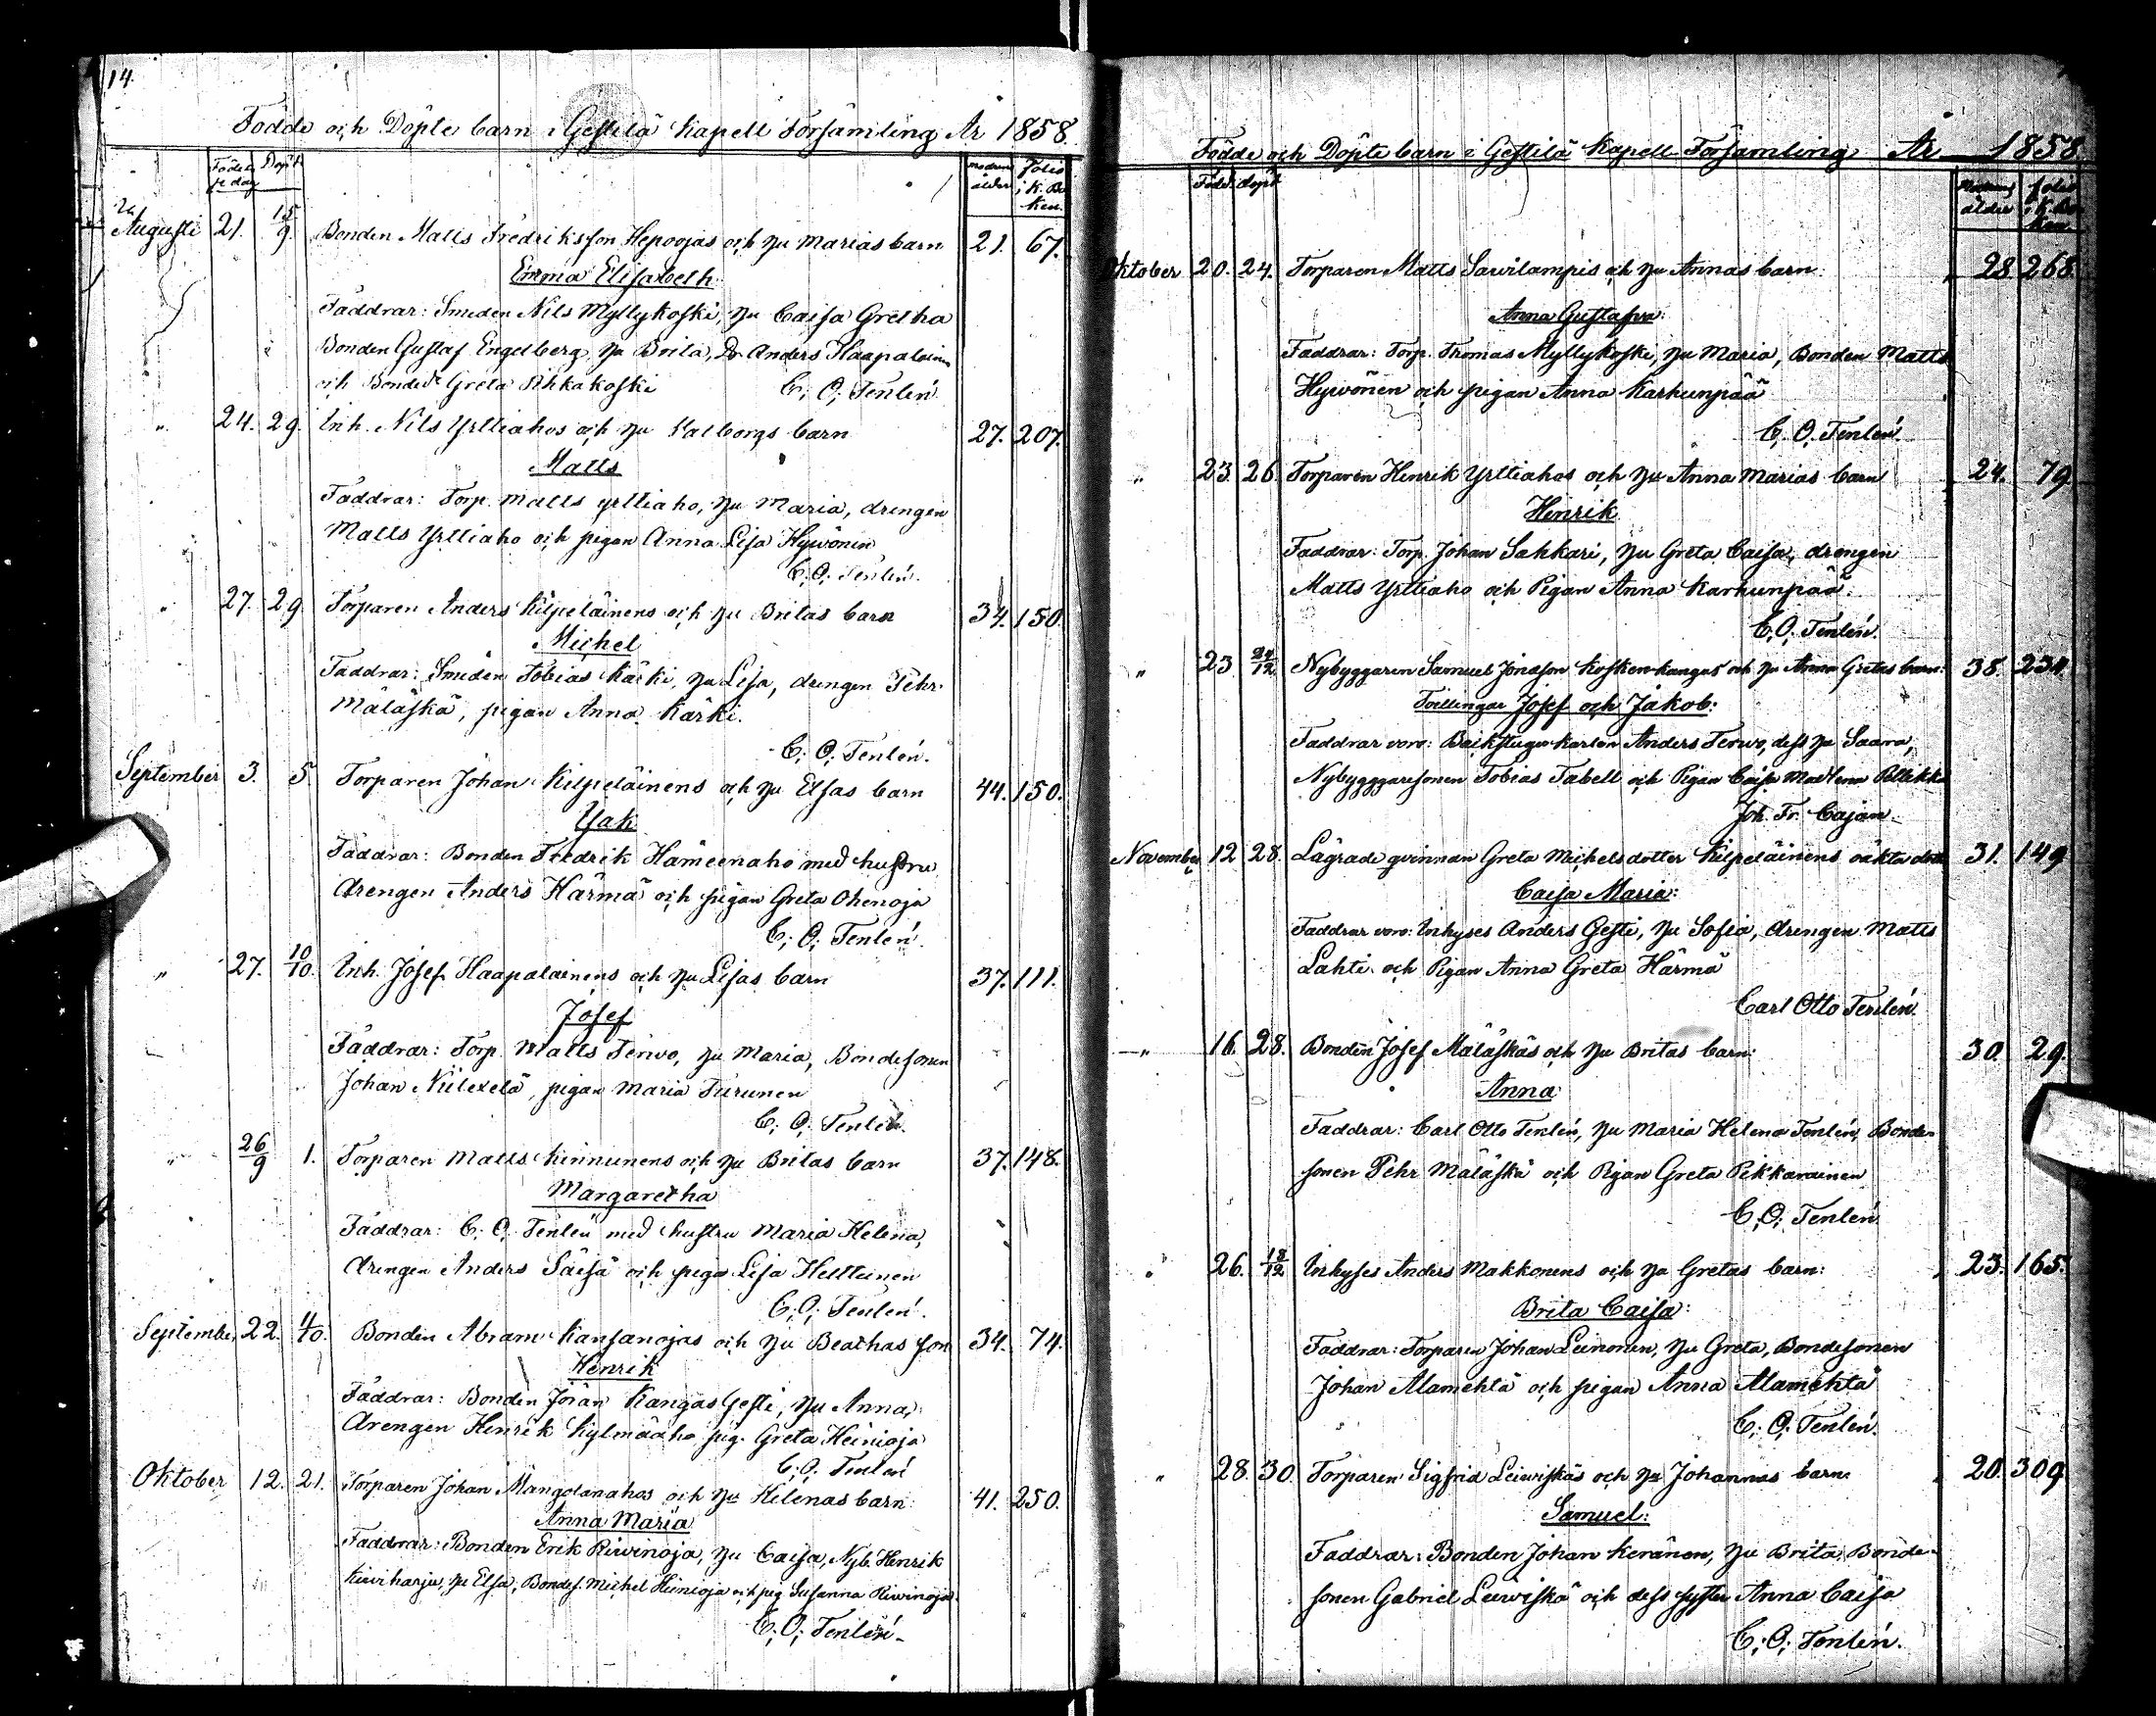 14.
Födde och Döpte barn i Gestilä Kapell Församling År 1858.
Födelse dag Döpt modrens ålder folio i K. Boken.
Augusti 21. 15/9. Bonden Matts Fredriksson Hepoojas och hu Marias barn 21. 67.
Emma Elisabeth:
Faddrar: Smeden Nils Myllykoski, hu Caisa Gretha
Bonden Gustaf Engelberg, hu Brita, Dr. Anders Haapalainen
och Bondedr Greta Pihkakoski C. O. Tenlén.
" 24. 29. Inh. Nils Yrttiahos och hu Walborgs barn 27. 207.
Matts
Faddrar: Torp. Matts Yrttiaho, hu Maria, drengen
Matts Yrttiaho och pigan Anna Lisa Hyvönen
C. O. Tenlén.
" 27. 29. Torparen Anders Kilpeläinens och hu Britas barn 34. 150.
Michel
Faddrar: Smeden Tobias Kärki, hu Lisa, drengen Pehr
Mäläskä, pigan Anna Kärki.
C. O. Tenlén.
September 3. 5. Torparen Johan Kilpeläinens och hu Elsas barn 44. 150.
Isak
Faddrar: Bonden Fredrik Hämeenaho med hustru
drengen Anders Härmä och pigan Greta Ohenoja
C. O. Tenlén.
" 27. 10/10. Inh. Josef Haapalainens och hu Lisas barn 37. 111.
Josef
Faddrar: Torp. Matts Terwo, hu Maria, Bondesonen
Johan Niilexelä, pigan Maria Turunen
C. O. Tenlén.
" 26/9 1. Torparen Matts Kinnunens och hu Britas barn 37. 148.
Margaretha
Faddrar: C. O. Tenlén med hustru Maria Helena,
drengen Anders Säisä och piga Lisa Helttunen
C. O. Tenlén.
September 22. 4/10. Bonden Abram Kansanojas och hu Beathas son 34. 74.
Henrik
Faddrar: Bonden Jöran Kangas Gesti, hu Anna,
drengen Henrik Kylmäaho pig. Greta Heinioja
C. O. Tenlén
Oktober 12. 21. Torparen Johan Mangolanahos och hu Helenas barn: 41. 250.
Anna Maria
Faddrar: Bonden Erik Riwinoja, hu Caisa, Nyb. Henrik
Kiwiharju, hu Elsa, Bondes. Michel Heinioja och pig Susanna Riwinoja.
C. O. Tenlén.
Födde och Döpte barn i Gestilä Kapell Församling År 1858.
Född döpt Modrens ålder folio i K. Boken
Oktober 20. 24. Torparen Matts Sawilampis och hu Annas barn: 28. 268.
Anna Gustafva:
Faddrar: Torp. Thomas Myllykoski, hu Maria, Bonden Matts
Hyvönen och pigan Anna Karhunpää
C. O. Tenlén.
" 23. 26. Torparen Henrik Yrttiahos och hu Anna Marias barn 24. 79.
Henrik
Faddrar: Torp. Johan Sahkari, hu Greta Caisa, drengen
Matts Yrttiaho och Pigan Anna Karhunpää.
C. O. Tenlén.
" 23 24/12 Nybyggaren Samuel Jonasson Koskenkangas och hu Anna Gretas barn: 38. 234.
Tvillingar Josef och Jakob:
Faddrar voro: Backstugukarlen Anders Terwo, dess hu Saara,
Nybyggaresonen Tobias Tabell och Pigan Caisa Madlena
Joh. Fr. Cajan.
November 12 28. Lägrade qvinnan Greta Michelsdotter Kilpeläinens oäkta dott 31. 149
Caisa Maria:
Faddrar voro: Inhyses Anders Gesti, hu Sofia, drengen Matts
Lahti och Pigan Anna Greta Härmä
Carl Otto Tenlén.
" 16. 28. Bonden Josef Mäläskäs och hu Britas barn: 30. 29.
Anna
Faddrar: Carl Otto Tenlén, hu Maria Helena Tenlén, Bonde-
sonen Pehr Mäläskä och Pigan Greta Pikkarainen
C. O. Tenlén.
" 26. 18/12 Inhyses Anders Makkonens och hu Gretas barn: 23. 165.
Brita Caisa:
Faddrar: Torparen Johan Leinonen, hu Greta, Bondesonen
Johan Alamehtä och pigan Anna Alamehtä
C. O. Tenlén.
" 28. 30. Torparen Sigfrid Leiwiskäs och hu Johannas barn 20. 309.
Samuel:
Faddrar: Bonden Johan Keränen, hu Brita, Bonde-
sonen Gabriel Leiwiskä och dess syster Anna Caisa
C. O. Tenlén.